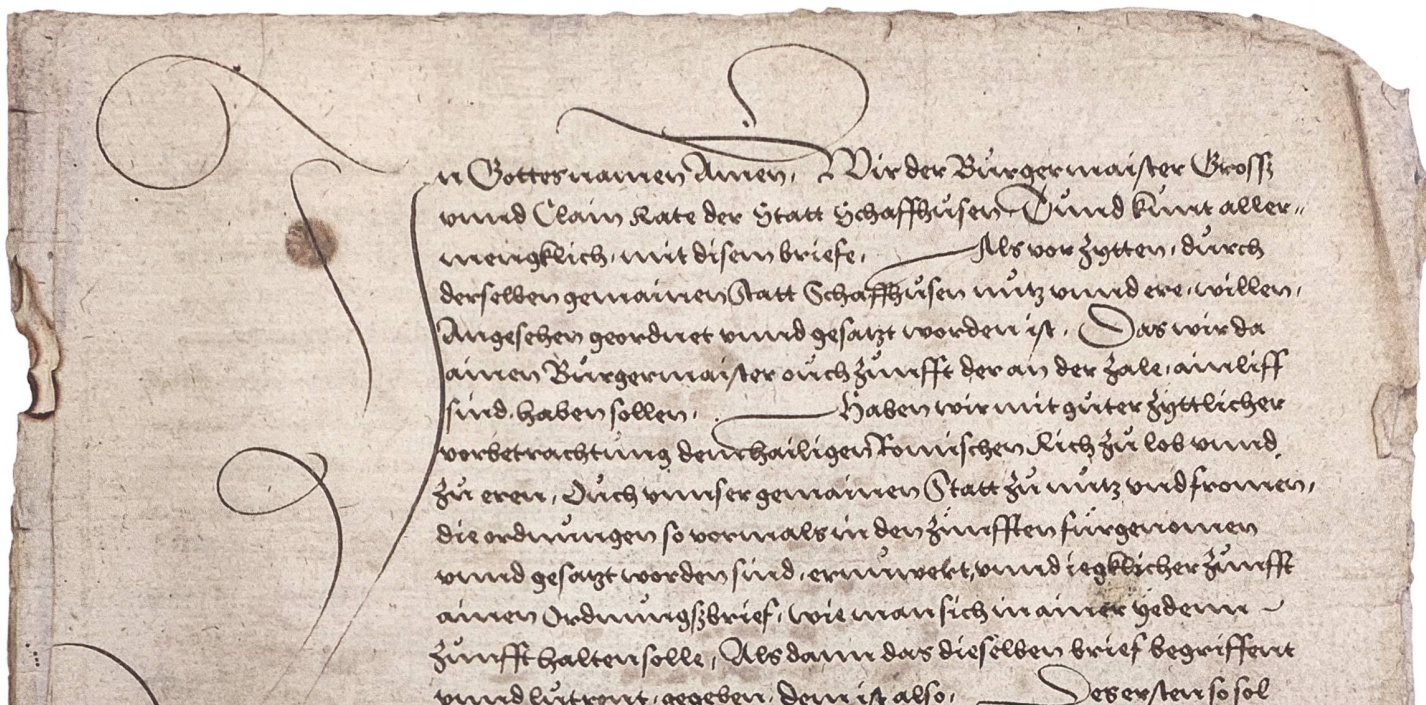 In Gottes namen Amen. Wir der Bürgermaister Grossz
vnnd Clain Rate der Statt Schaffhüsen Tünd kunt aller-
mengklich, mit disem briefe. Als vor zytten, durch
derselben gemainen Statt Schaffhüsen nütz vnnd ere, willen,
Angesehen geordnet vnnd gesatzt worden ist. Das wir da
ainen Bürgermaister oüch zünfft der an der zale, ainliff
sind, haben sollen. Haben wir mit güter zyttlicher
vorbetrachtüng dem hailigen Romischen Rich zü lob vnnd
zü eren, Oüch vnnser gemainen Statt zü nütz vnd fromen,
die ordnüngen so vormals in den zünfften fürgenomen
vnnd gesatzt worden sind, ernüwert, vnnd iegklicher zünfft
ainen Ordnüngszbrief, wie man sich in ainer yedenn
zünfft halten solle, Als dann das dieselben brief begriffent
vnnd lütrent, gegeben, dem ist also. Des ersten so sol